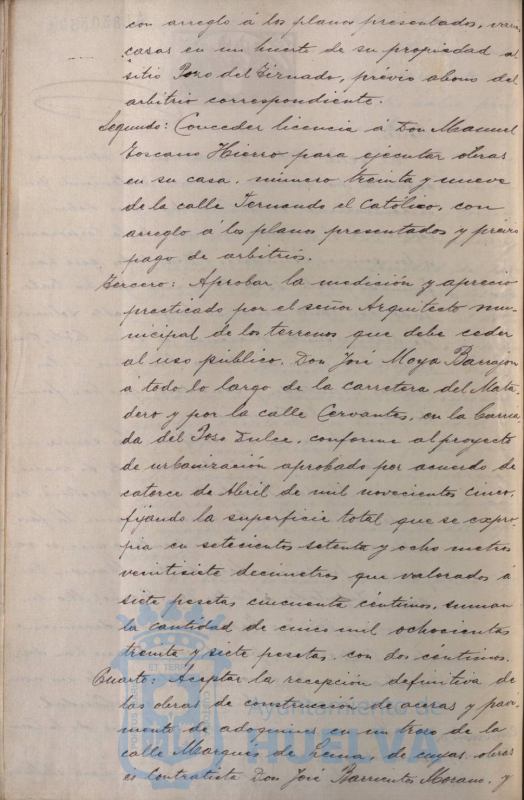 con arreglo á los planos presentados, varias
casas en un huerto de su propiedad al
sitio Pozo del Firmado, prévio abono del
arbitrio correspondiente.
Segundo: Conceder licencia á Don Manuel
Toscano Hierro para ejecutar obras
en su casa, número treinta y nueve
de la calle Fernando el Católico, con
arreglo á los planos presentados y prévio
pago de arbitrios.
Tercero: Aprobar la medición y aprecio
practicado por el señor Arquitecto mu-
nicipal de los terrenos que debe ceder
al uso público, Don José Moya Barrajon
a todo lo largo de la carretera del Mata-
dero y por la calle Cervantes, en la
da del Pozo Dulce, conforme al proyecto
de urbanización aprobado por acuerdo de
catorce de Abril de mil novecientos cinco,
fijando la superficie total que se expro-
pia en setecientos setenta y ocho metros
veintisiete decimetros que valorados á
siete pesetas cincuenta céntimos, suman
la cantidad de cinco mil ochocientas
treinta y siete pesetas con dos céntimos.
Cuarto: Aceptar la recepción definitiva de
las obras de construcción de aceras y pavi-
mento de adoquines en un trozo de la
calle Marqués de de cuyas obras
es Contratista Don José Barrientos Moreno, y
Ayuntamiento de
HUELVA